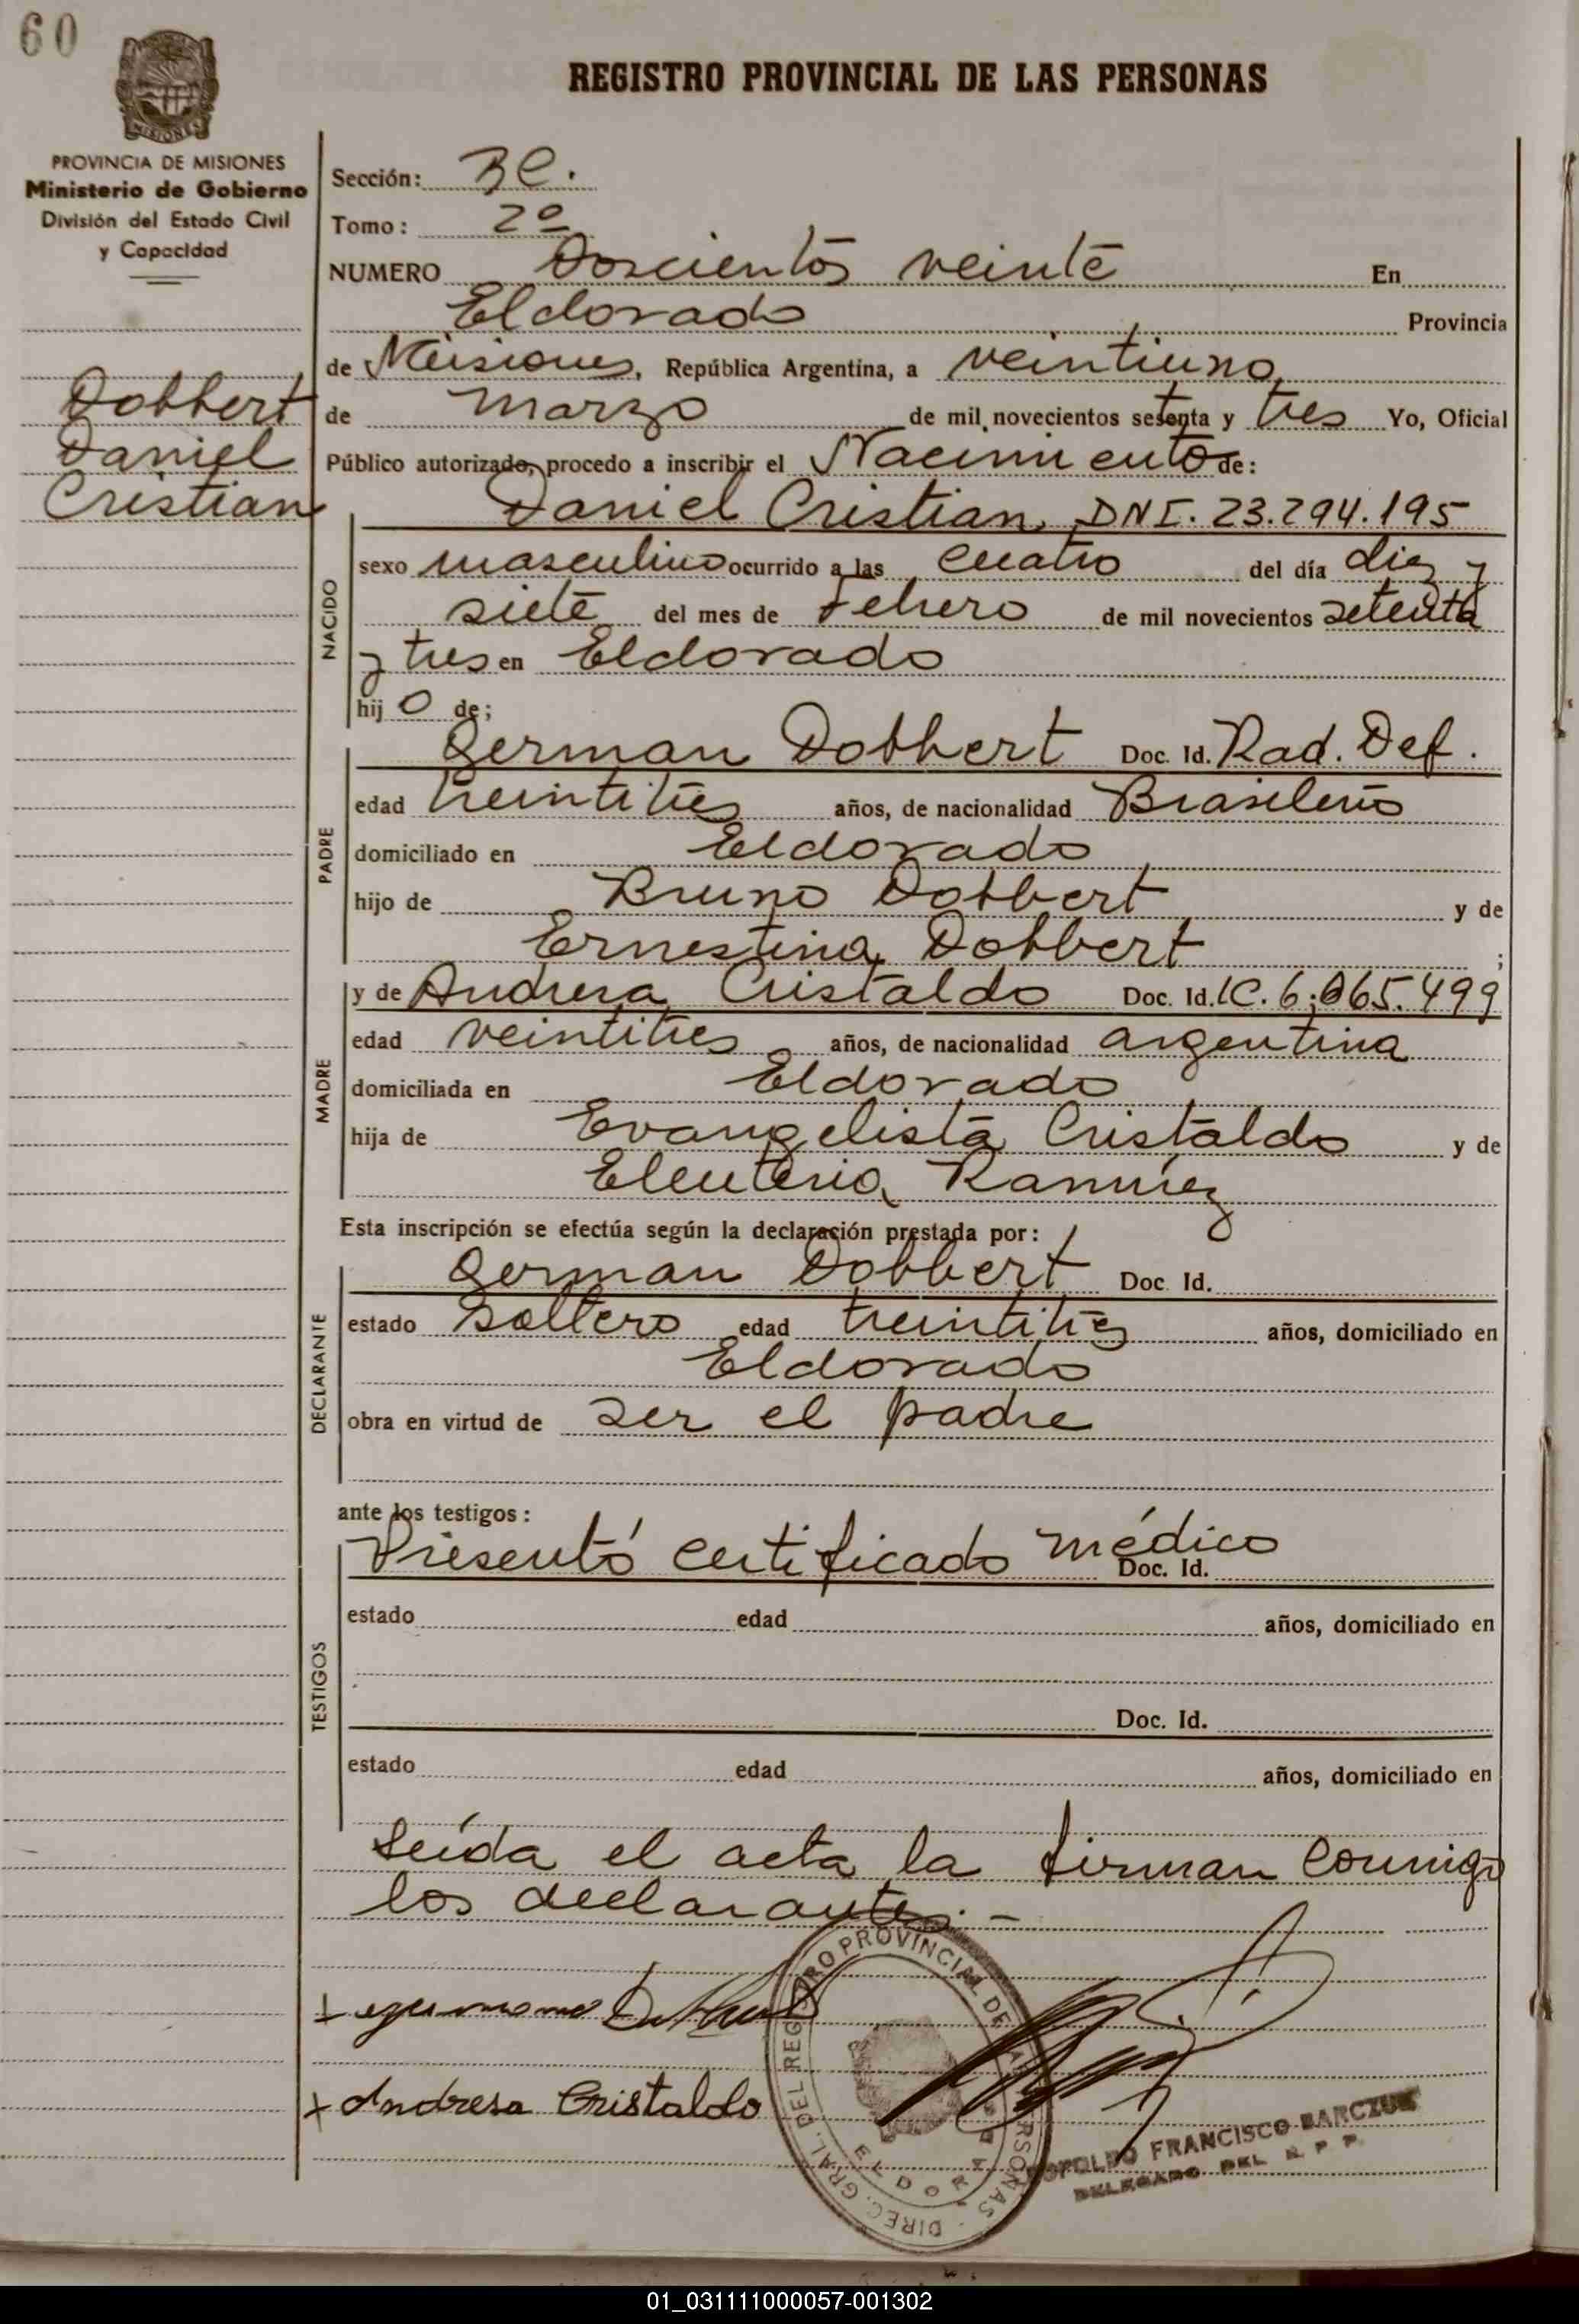 60
MISIONES
REGISTRO PROVINCIAL DE LAS PERSONAS
PROVINCIA DE MISIONES
Ministerio de Gobierno
División del Estado Civil
y Capacidad
Dobbert
Daniel
Cristian
Sección: 3C.
Tomo: 2º
NUMERO Doscientos veinte En
Eldorado Provincia
de Misiones, República Argentina, a veintiuno
de marzo de mil novecientos setenta y tres Yo, Oficial
Público autorizado, procedo a inscribir el Nacimiento de:
NACIDO
Daniel Cristian DNI. 23.294.195
sexo masculino ocurrido a las cuatro del día diez y
siete del mes de Febrero de mil novecientos setenta
y tres en Eldorado
hij o de;
PADRE
German Dobbert Doc. Id. Rad. Def.
edad treintitres años, de nacionalidad Brasileño
domiciliado en Eldorado
hijo de Bruno Dobbert y de
Ernestina Dobbert ;
MADRE
y de Andresa Cristaldo Doc. Id. LC. 6.065.499
edad veintitres años, de nacionalidad argentina
domiciliada en Eldorado
hija de Evangelista Cristaldo y de
Eleuteria Ramírez
Esta inscripción se efectúa según la declaración prestada por:
DECLARANTE
German Dobbert Doc. Id.
estado soltero edad treintitres años, domiciliado en
Eldorado
obra en virtud de ser el padre
ante los testigos:
TESTIGOS
Presentó certificado médico Doc. Id.
estado edad años, domiciliado en
Doc. Id.
estado edad años, domiciliado en
Leída el acta la firman conmigo
los declarantes. -
Andresa Cristaldo
DIREC. GRAL. DEL REGISTRO PROVINCIAL DE LAS PERSONAS
ELDORADO
LEOPOLDO FRANCISCO BARCZUK
DELEGADO DEL R. P. P.
01_031111000057-001302